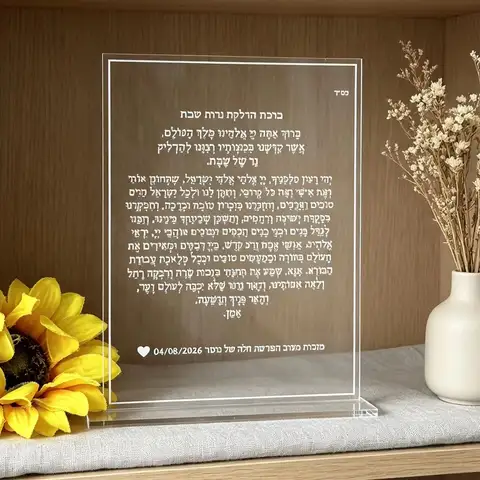 בס״ד
ברכת הדלקת נרות שבת
בָּרוּךְ אַתָּה יְיָ אֱלֹהֵינוּ מֶלֶךְ הָעוֹלָם,
אֲשֶׁר קִדְּשָׁנוּ בְּמִצְוֹתָיו וְצִוָּנוּ לְהַדְלִיק
נֵר שֶׁל שַׁבָּת.
יְהִי רָצוֹן מִלְּפָנֶיךָ, יְיָ אֱלֹהַי אֱלֹהֵי יִשְׂרָאֵל, שֶׁתְּחוֹנֵן אוֹתִי
וְאֶת אִישִׁי וְאֶת כָּל קְרוֹבַי, וְתִתֵּן לָנוּ וּלְכָל יִשְׂרָאֵל חַיִּים
טוֹבִים וַאֲרֻכִּים, וְתִזְכְּרֵנוּ בְּזִכְרוֹן טוֹבָה וּבְרָכָה, וְתִפְקְדֵנוּ
בִּפְקֻדַּת יְשׁוּעָה וְרַחֲמִים, וְתַשְׁכֵּן שְׁכִינָתְךָ בֵּינֵינוּ, וְזַכֵּנוּ
לְגַדֵּל בָּנִים וּבְנֵי בָנִים חֲכָמִים וּנְבוֹנִים אוֹהֲבֵי יְיָ, יִרְאֵי
אֱלֹהִים, אַנְשֵׁי אֱמֶת זֶרַע קֹדֶשׁ, בַּיְיָ דְּבֵקִים וּמְאִירִים אֶת
הָעוֹלָם בְּתוֹרָה וּבְמַעֲשִׂים טוֹבִים וּבְכָל מְלֶאכֶת עֲבוֹדַת
הַבּוֹרֵא. אָנָּא, שְׁמַע אֶת תְּחִנָּתִי בִּזְכוּת שָׂרָה וְרִבְקָה רָחֵל
וְלֵאָה אִמּוֹתֵינוּ, וְהָאֵר נֵרֵנוּ שֶׁלֹּא יִכְבֶּה לְעוֹלָם וָעֶד,
וְהָאֵר פָּנֶיךָ וְנִוָּשֵׁעָה.
אָמֵן.
מזכות מערב הפרשת חלה של 04/08/2026